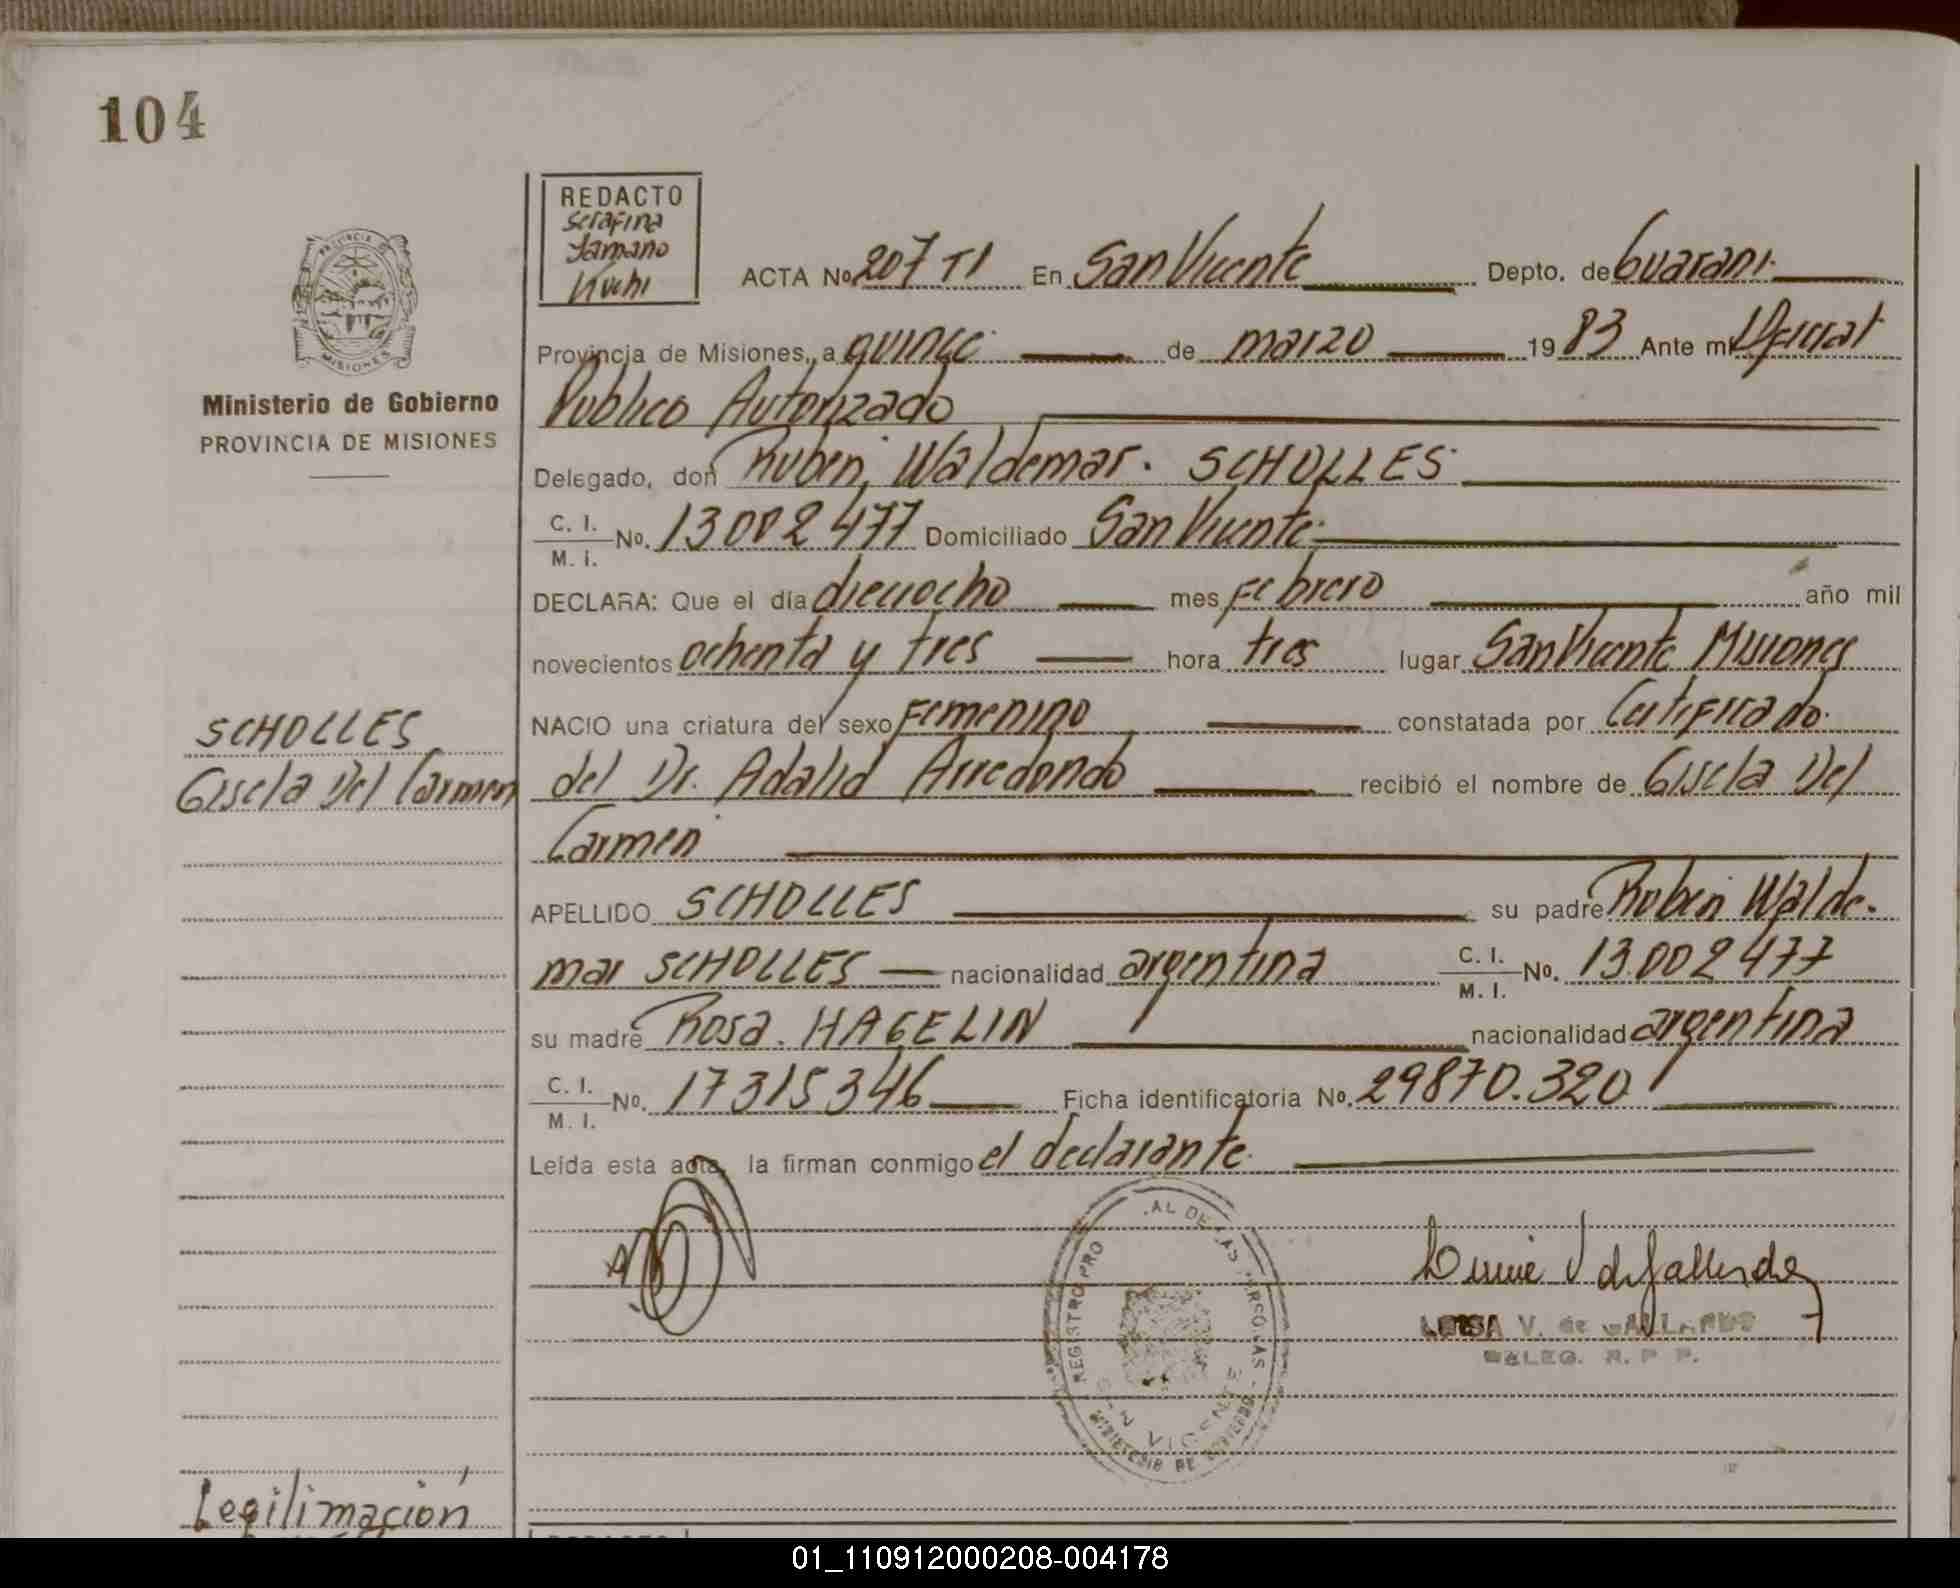 104
REDACTO
Serafina
Tamano
Kuchi
PROVINCIA DE
MISIONES
Ministerio de Gobierno
PROVINCIA DE MISIONES
ACTA No. 207 T1 En San Vicente Depto. de Guarani.
Provincia de Misiones, a quince de marzo 1983 Ante mi Oficial
Publico Autorizado
Delegado, don Ruben Waldemar. SCHOLLES
C. I. / M. I. No. 13002477 Domiciliado San Vicente
DECLARA: Que el día dieciocho mes Febrero año mil
novecientos ochenta y tres hora tres lugar San Vicente Misiones
NACIO una criatura del sexo Femenino constatada por Certificado
del Dr. Adalid Arredondo recibió el nombre de Gisela Del
Carmen
APELLIDO SCHOLLES su padre Ruben Walde-
mar SCHOLLES nacionalidad argentina C. I. / M. I. No. 13.002477
su madre Rosa. HAGELIN nacionalidad argentina
C. I. / M. I. No. 17315346 Ficha identificatoria No. 29870.320
Leída esta acta, la firman conmigo el declarante.
SCHOLLES
Gisela Del Carmen
REGISTRO PRO AL DE LAS PERSONAS
MINISTERIO DE GOBIERNO
SAN VICENTE
LUISA V. de GALLARDO
DELEG. R. P. P.
Legitimación
REDACTO
01_110912000208-004178